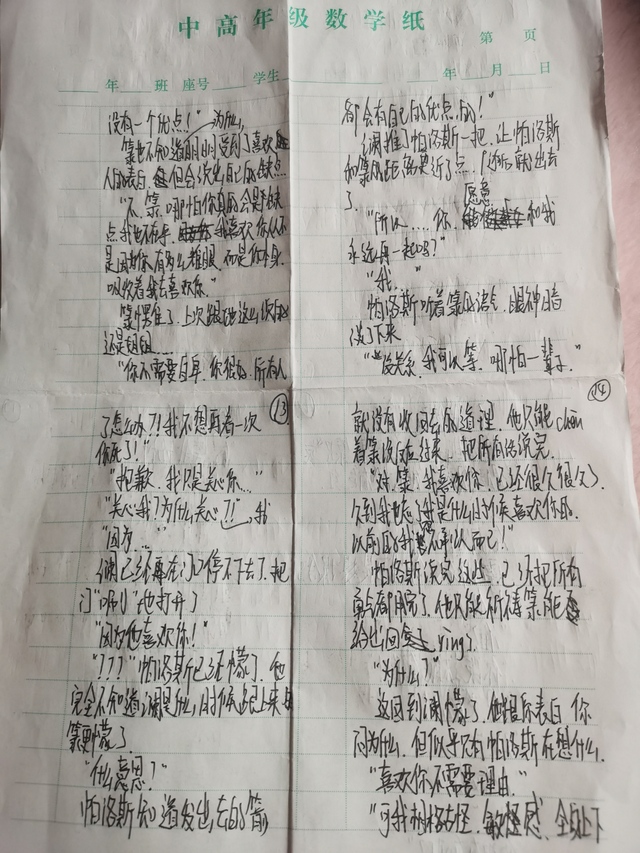 中高年级数学纸
第 页
年 班 座号 学生 年 月 日
没有一个优点！"
为什么
箫也不知道明明受到了喜欢
人的表白，但会说出自己的缺点
"不，箫，哪怕你真的会是缺
点，我也不在乎，我喜欢你从不
是因为你有多么耀眼，而是你本身
吸收着我去喜欢你。"
箫愣住了，上次跟他这么说的
还是姐姐……
"你不需要自卑，你很好，所有人
都会有自己的优点的！"
澜推了帕洛斯一把，让帕洛斯
和箫的距离更近了点
了。
"所以……你，愿意和我
永远再一起吗？"
"我，"
帕洛斯听着箫的语气，眼神暗
淡了下来
"没关系，我可以等，哪怕一辈子。"
⑬
了怎么办？！我不想再看一次
你死了！"
"抱歉，我只是关心你…"
"关心我？为什么关心我？！"
"因为…"
澜已经再在门口停不下去了，把
门"啪！"地打开了
"因为他喜欢你！"
"？？？"帕洛斯已经懵了，他
完全不知道澜是什么时候跟上来的
箫更懵了
"什么意思？"
帕洛斯知道发出去的箭
⑭
就没有收回去的道理，他只能chèn
着箫没反应过来，把所有话说完
"对，箫，我喜欢你，已经很久很久，
久到我忘了我是什么时候喜欢你的，
以前的我不承认而已！"
帕洛斯说完这些，已经把所有
勇气都用完了，他只能祈祷箫能
给出回yìng
"为什么？"
这回到澜懵了，他跟你表白，你
问为什么，但似乎只有帕洛斯在想什么，
"喜欢你不需要理由。"
"可我性格古怪，敏感，全身上下